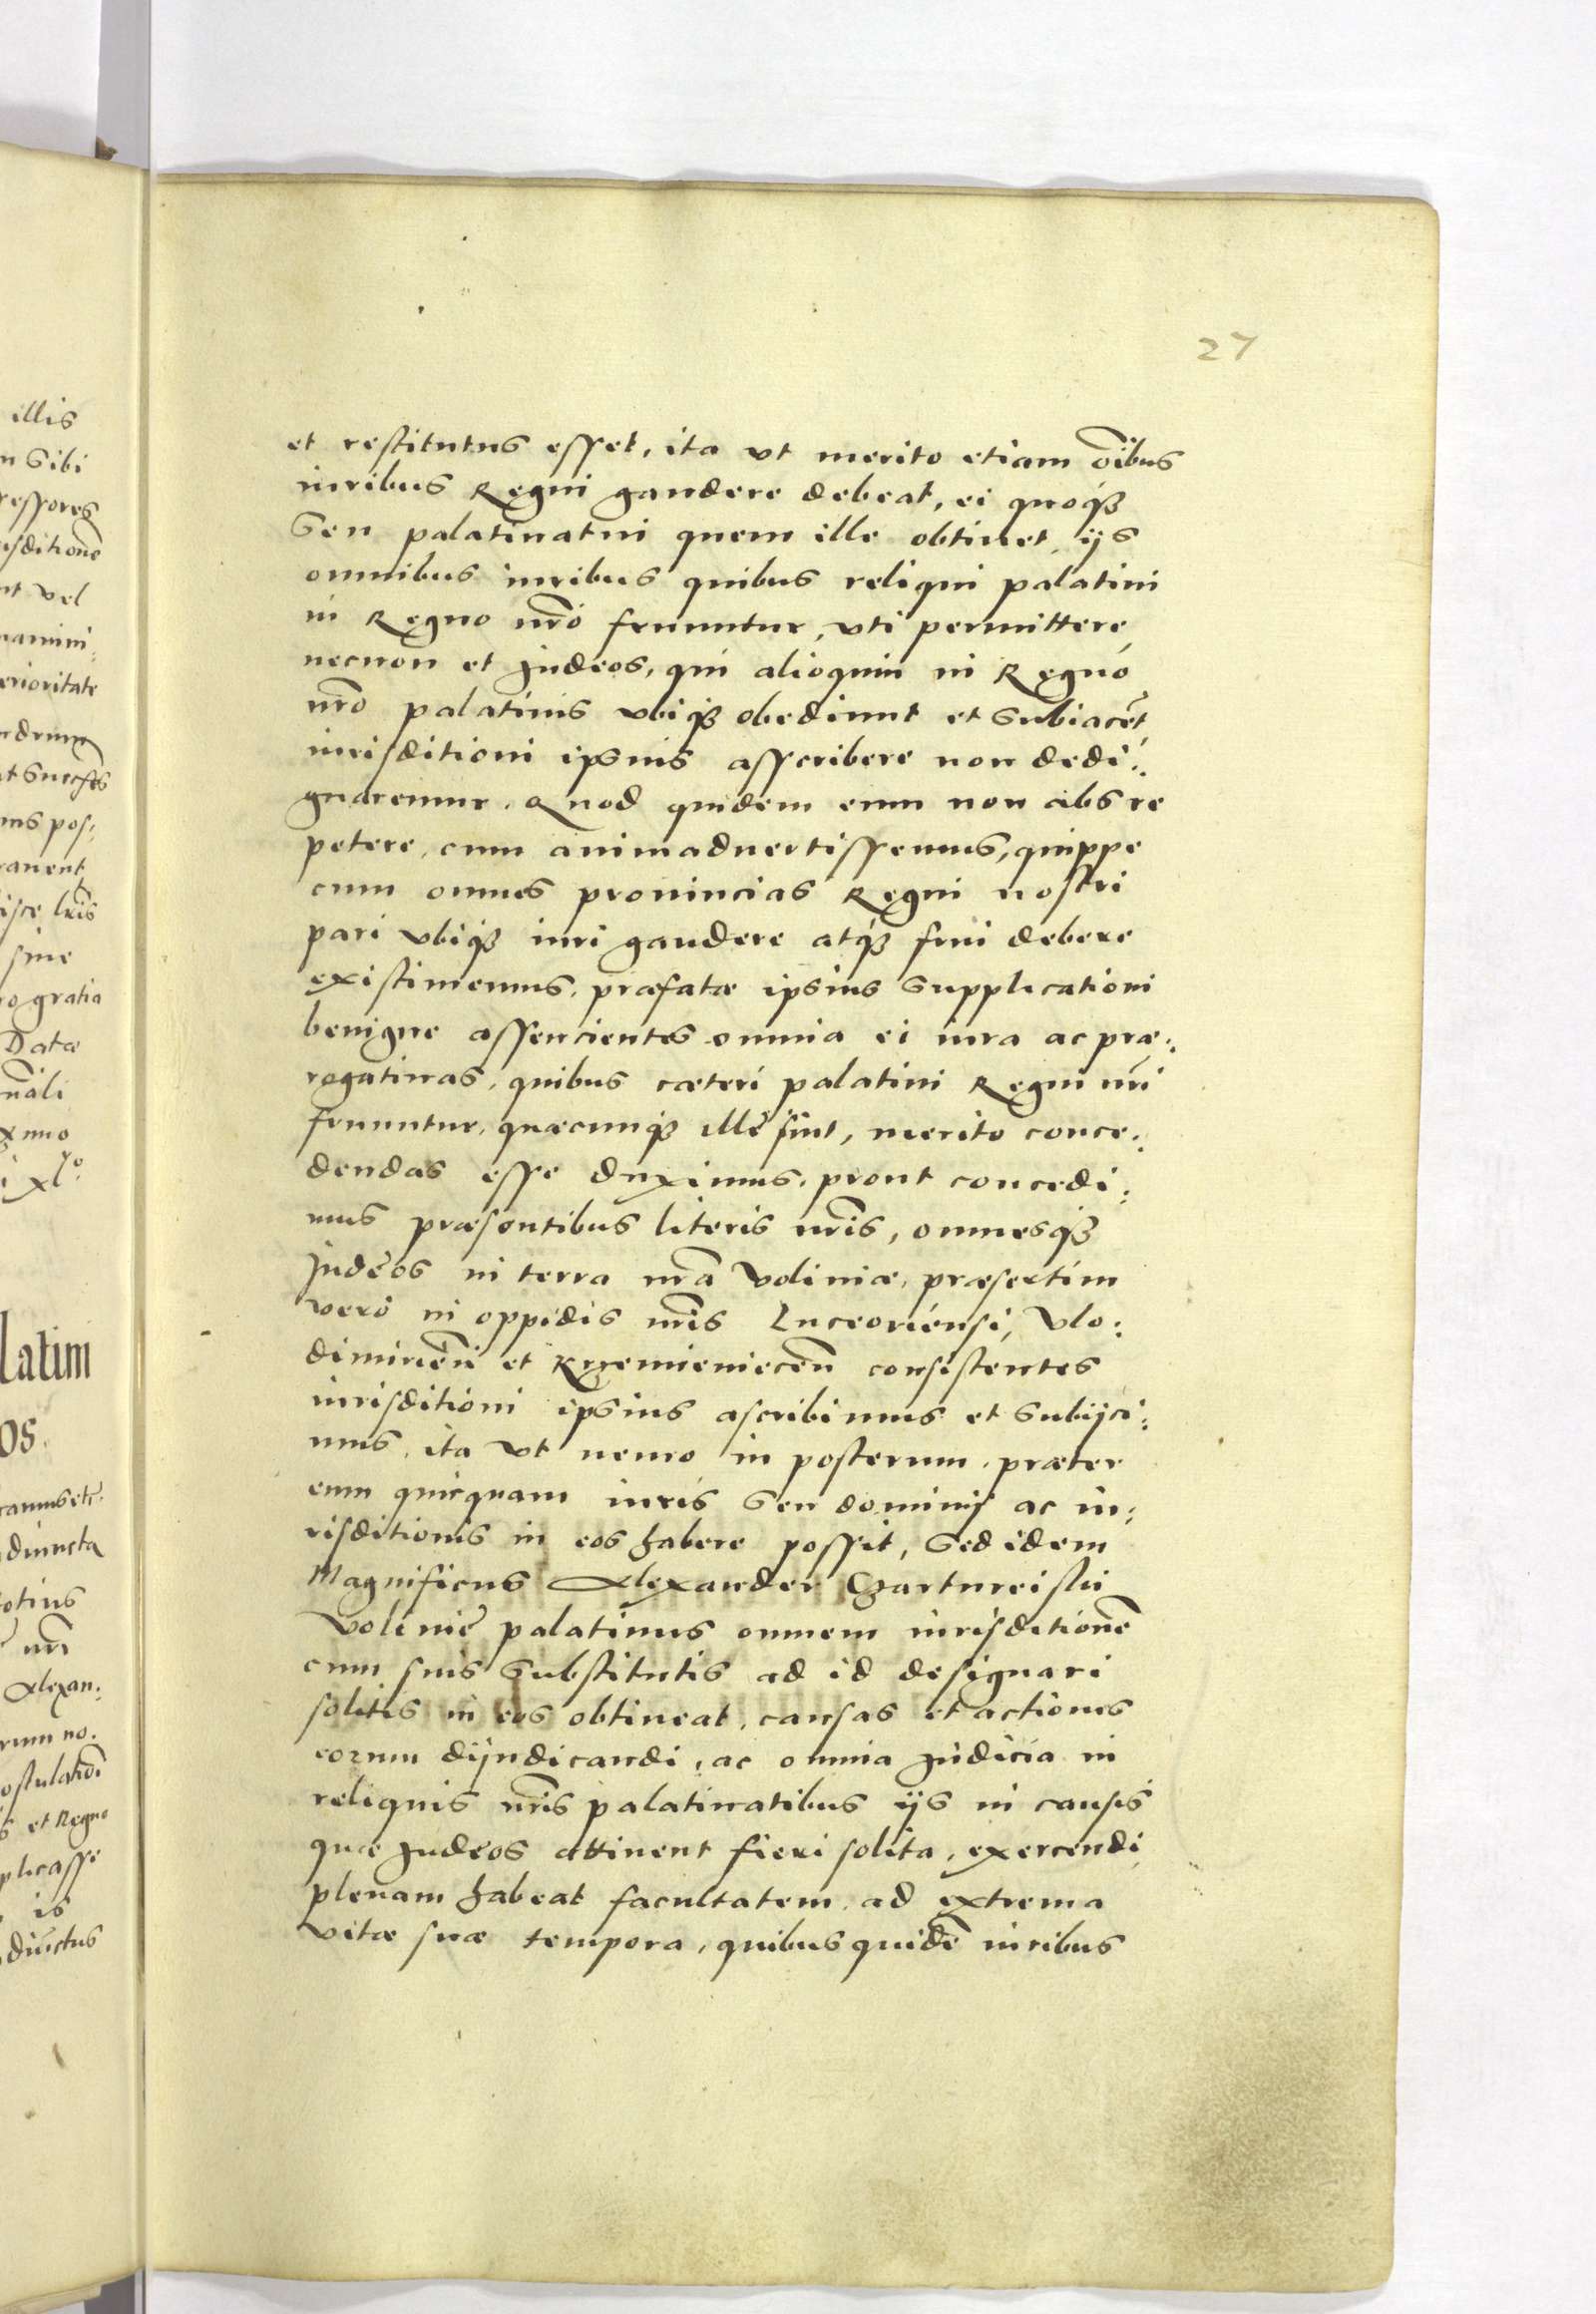 27
et restitutus esset, ita vt merito etiam oi͞bus
iuribus Regni gaudere debeat, ei quoq3
seu palatinatui quem ille obtinet, ijs
omnibus iuribus quibus reliqui palatini
in Regno nr͞o fruuntur, vti permittere,
necnon et Judeos, qui alioquin in Regno
nr͞o palatinis vbiq3 obediunt et subiace͞t,
iurisditioni ipsius asscribere non dedi:
gnaremur. Quod quidem eum non abs re
petere, cum animaduertissemus, quippe
cum omnes prouincias Regni nostri
pari vbiq3 iuri gaudere atq3 frui debere
existimemus, præfatæ ipsius supplicationi
benigne assencientes omnia ei iura ac præ:
rogatiuas, quibus cæteri palatini Regni nr͞i
fruuntur, quæcunq3 ille sint, merito conce:
dendas esse duximus, prout concedi:
mus præsentibus literis nr͞is, omnesq3
Judeos in terra nr͞a Voliniæ, præsertim
vero in oppidis nr͞is Luceoriensi, Vlo:
dimirien͞i et Krzemieniecen͞ consistentes
iurisditioni ipsius ascribimus et subijci:
mus, ita vt nemo in posterum, præter
eum quicquam iuris seu dominij ac iu:
risditionis in eos habere possit, sed idem
Magnificus Alexander Czartoreiski
Volinie palatinus omnem iurisditione͞
cum suis substitutis ad id designari
solitis in eos obtineat, causas et actiones
eorum dijudicandi, ac omnia Judicia in
reliquis nr͞is palatinatibus ijs in causis
quæ Judeos attinent fieri solita, exercendi
plenam habeat facultatem, ad extrema
vitæ suæ tempora, quibus quide͞ iuribus